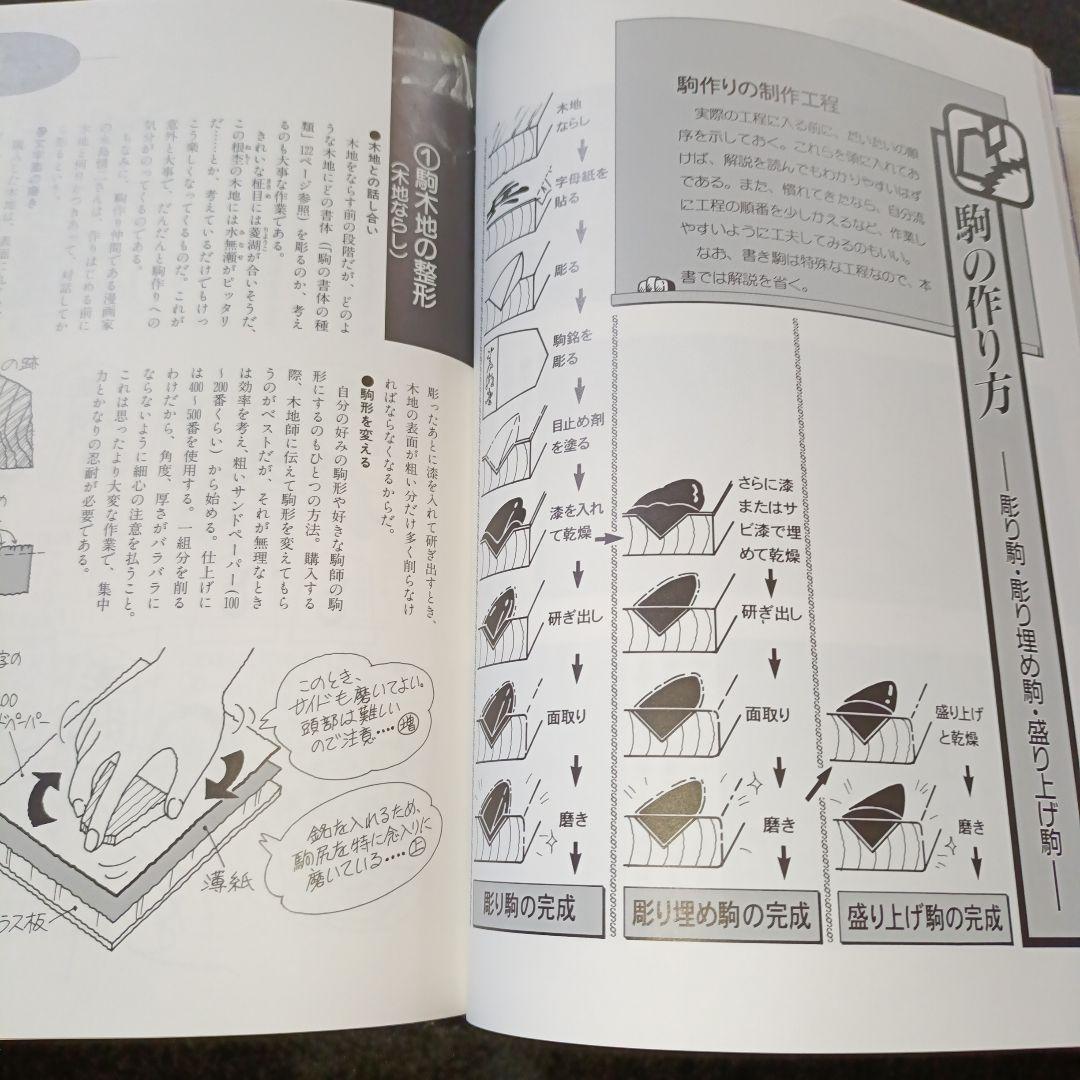 駒の作り方
──彫り駒・彫り埋め駒・盛り上げ駒──
駒作りの制作工程
実際の工程に入る前に、だいたいの順
序を示しておく。これらを頭に入れてお
けば、解説を読んでもわかりやすいはず
である。また、慣れてきたなら、自分流
に工程の順番を少しかえるなど、作業し
やすいように工夫してみるのもいい。
なお、書き駒は特殊な工程なので、本
書では解説を省く。
木地
ならし
字母紙を
貼る
彫る
駒銘を
彫る
目止め剤
を塗る
漆を入れ
て乾燥
研ぎ出し
面取り
磨き
彫り駒の完成
さらに漆
またはサ
ビ漆で埋
めて乾燥
研ぎ出し
面取り
磨き
彫り埋め駒の完成
盛り上げ
と乾燥
磨き
盛り上げ駒の完成
①駒木地の整形
(木地ならし)
●木地との話し合い
木地をならす前の段階だが、どのよ
うな木地にどの書体(「駒の書体の種
類」122ページ参照)を彫るのか、考え
るのも大事な作業である。
きれいな柾目には菱湖が合いそうだ、
この根杢の木地には水無瀬がピッタリ
だ……とか、考えているだけでもけっ
こう楽しくなってくるものだ。これが
意外と大事で、だんだんと駒作りへの
気分がのってくるのである。
ちなみに、駒作り仲間である漫画家
彫ったあとに漆を入れて研ぎ出すとき、
木地の表面が粗い分だけ多く削らなけ
ればならなくなるからだ。
●駒形を変える
自分の好みの駒形や好きな駒師の駒
形にするのもひとつの方法。購入する
際、木地師に伝えて駒形を変えてもら
うのがベストだが、それが無理なとき
は効率を考え、粗いサンドペーパー(100
～200番くらい)から始める。仕上げに
は400～500番を使用する。一組分を削る
わけだから、角度、厚さがバラバラに
ならないように細心の注意を払うこと。
これは思ったより大変な作業で、集中
力とかなりの忍耐が必要である。
の跡
このとき、
サイドも磨いてよい。
頭部は難しい
ので注意‥‥増
銘を入れるため、
駒尻を特に念入りに
磨いている‥‥上
薄紙
ラス板
字の
00
ドペーパー